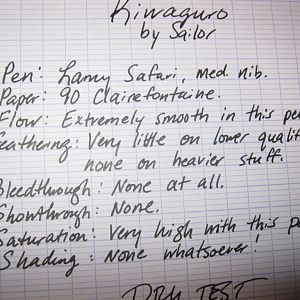 Kiwaguro
by Sailor
Pen: Lamy Safari, med. nib.
Paper: 90 Clairefontaine.
Flow: Extremely smooth in this pe
eathering: Very little on lower qualit
none on heavier stuff.
Bleedthrough: None at all.
Showthrough: None.
Saturation: Very high with this pe
Shading: None whatsoever!
DRY TEST